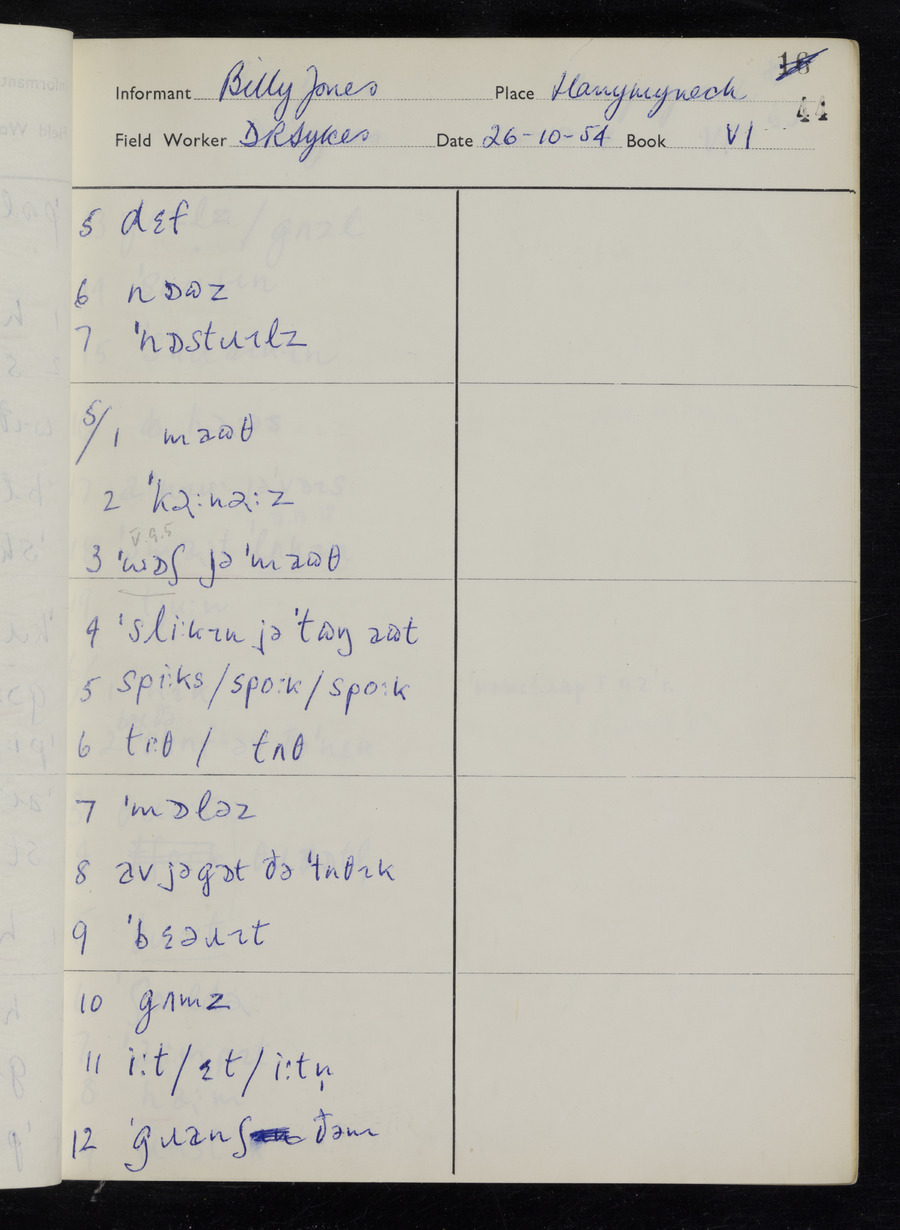 18
Informant Billy Jones Place Llanymynech
44
Field Worker DRSykes Date 26-10-54 Book VI
5 dɛf
6 nɒʊz
7 ˈnɒstɹɪlz
5/1 məʊθ
2 ˈkəːnəːz
V.9.5
3 ˈwɒʃ jə ˈməʊθ
4 ˈsliːkɪn jə ˈtʊŋ əʊt
5 spiːks / spoːk / spoːk
6 tiːθ / tʌθ
7 ˈmɒləz
8 əv jə gɒt ðə ˈtʌθɪk
9 ˈbɛəɹɪt
10 gʌmz
11 iːt / ɛt / iːtn̩
12 ˈgɹənʃ ðəm